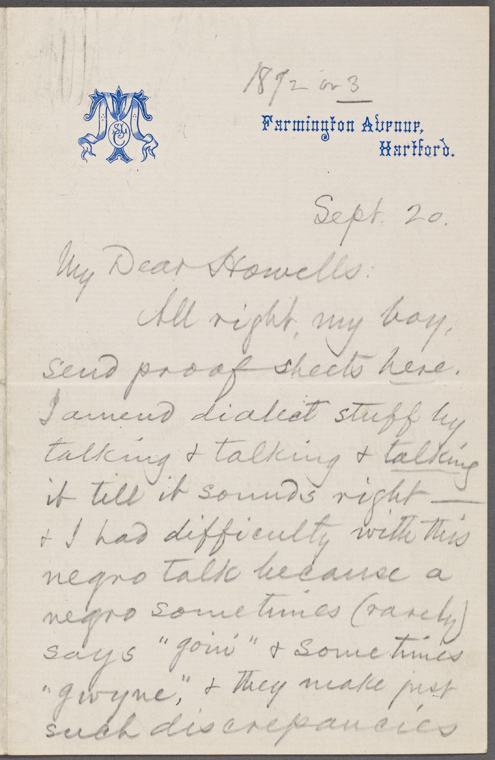 1892 or 3
Farmington Avenue,
Hartford.
Sept. 20.
My Dear Howells:
All right, my boy,
send proof sheets here.
I amend dialect stuff by
talking & talking & talking
it till it sounds right —
& I had difficulty with this
negro talk because a
negro sometimes (rarely)
says "goin'" & sometimes
"gwyne," & they make just
such discrepancies